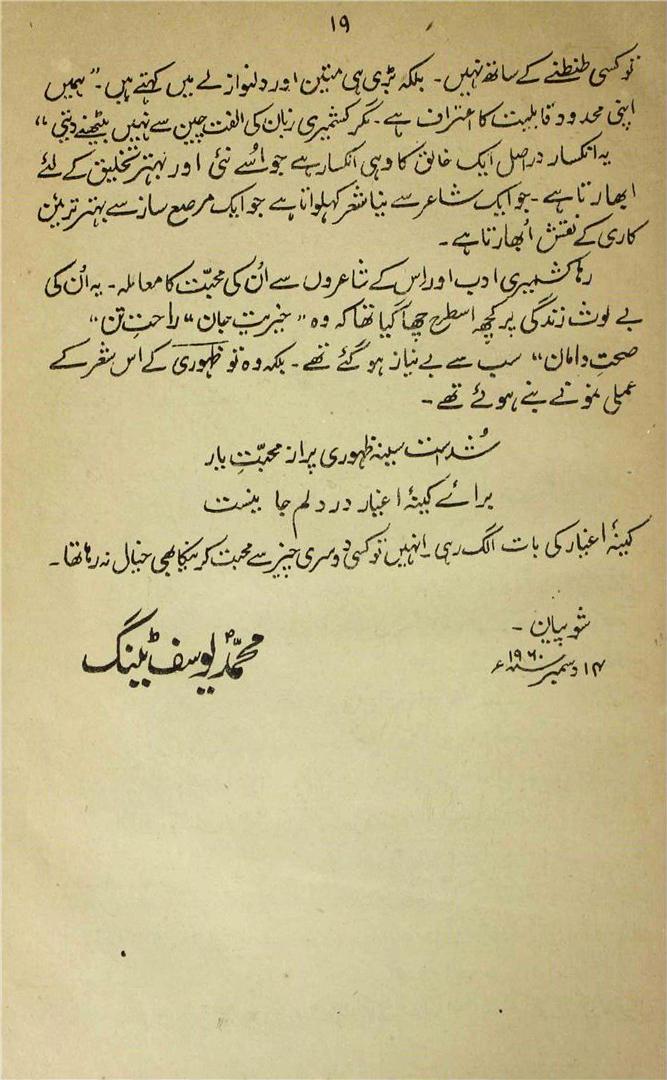 ۱۹
تو کسی طنطنے کے ساتھ نہیں۔ بلکہ بڑی ہی متین اور دلنواز لے میں کہتے ہیں۔ "ہمیں
اپنی محدود قابلیت کا اعتراف ہے۔ مگر کشمیری زبان کی الفت چین سے نہیں بیٹھنے دیتی"
یہ انکسار دراصل ایک خالق کا وہی انکسار ہے جو اُسے نئی اور بہتر تخلیق کے لئے
ابھارتا ہے۔ جو ایک شاعر سے نیا شعر کہلواتا ہے جو ایک مرصع ساز سے بہتر تزئین
کاری کے نقش اُبھارتا ہے۔
رہا کشمیری ادب اور اس کے شاعروں سے اُن کی محبّت کا معاملہ۔ یہ اُن کی
بے لوث زندگی پر کچھ اسطرح چھا گیا تھا کہ وہ "خیریتِ جان" راحتِ تن"
صحتِ دامان" سب سے بے نیاز ہو گئے تھے۔ بلکہ وہ تو ظہوری کے اس شعر کے
عملی نمونے بنے ہوئے تھے۔
شُد است سینہ ظہوری پراز محبّتِ یار
برائے کینۂ اغیار در دلم جا نیست
کینۂ اغیار کی بات الگ رہی۔ انہیں تو کسی دوسری چیز سے محبت کرنیکا بھی خیال نہ رہا تھا۔
شوپیان۔
۱۴ دسمبر ۱۹۶۰ء
محمّد یوسف ٹینگ